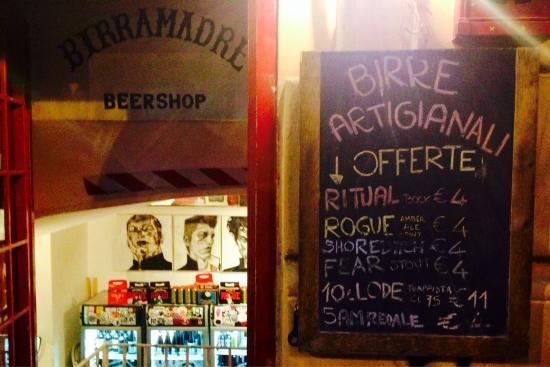 BIRRAMADRE
BEERSHOP
BIRRE
ARTIGIANALI
OFFERTE
RITUAL BOCK € 4
ROGUE AMBER ALE € 4
SHOREDITCH € 4
FEAR STOUT € 4
10 e LODE TRAPPISTA CL 75 € 11
€